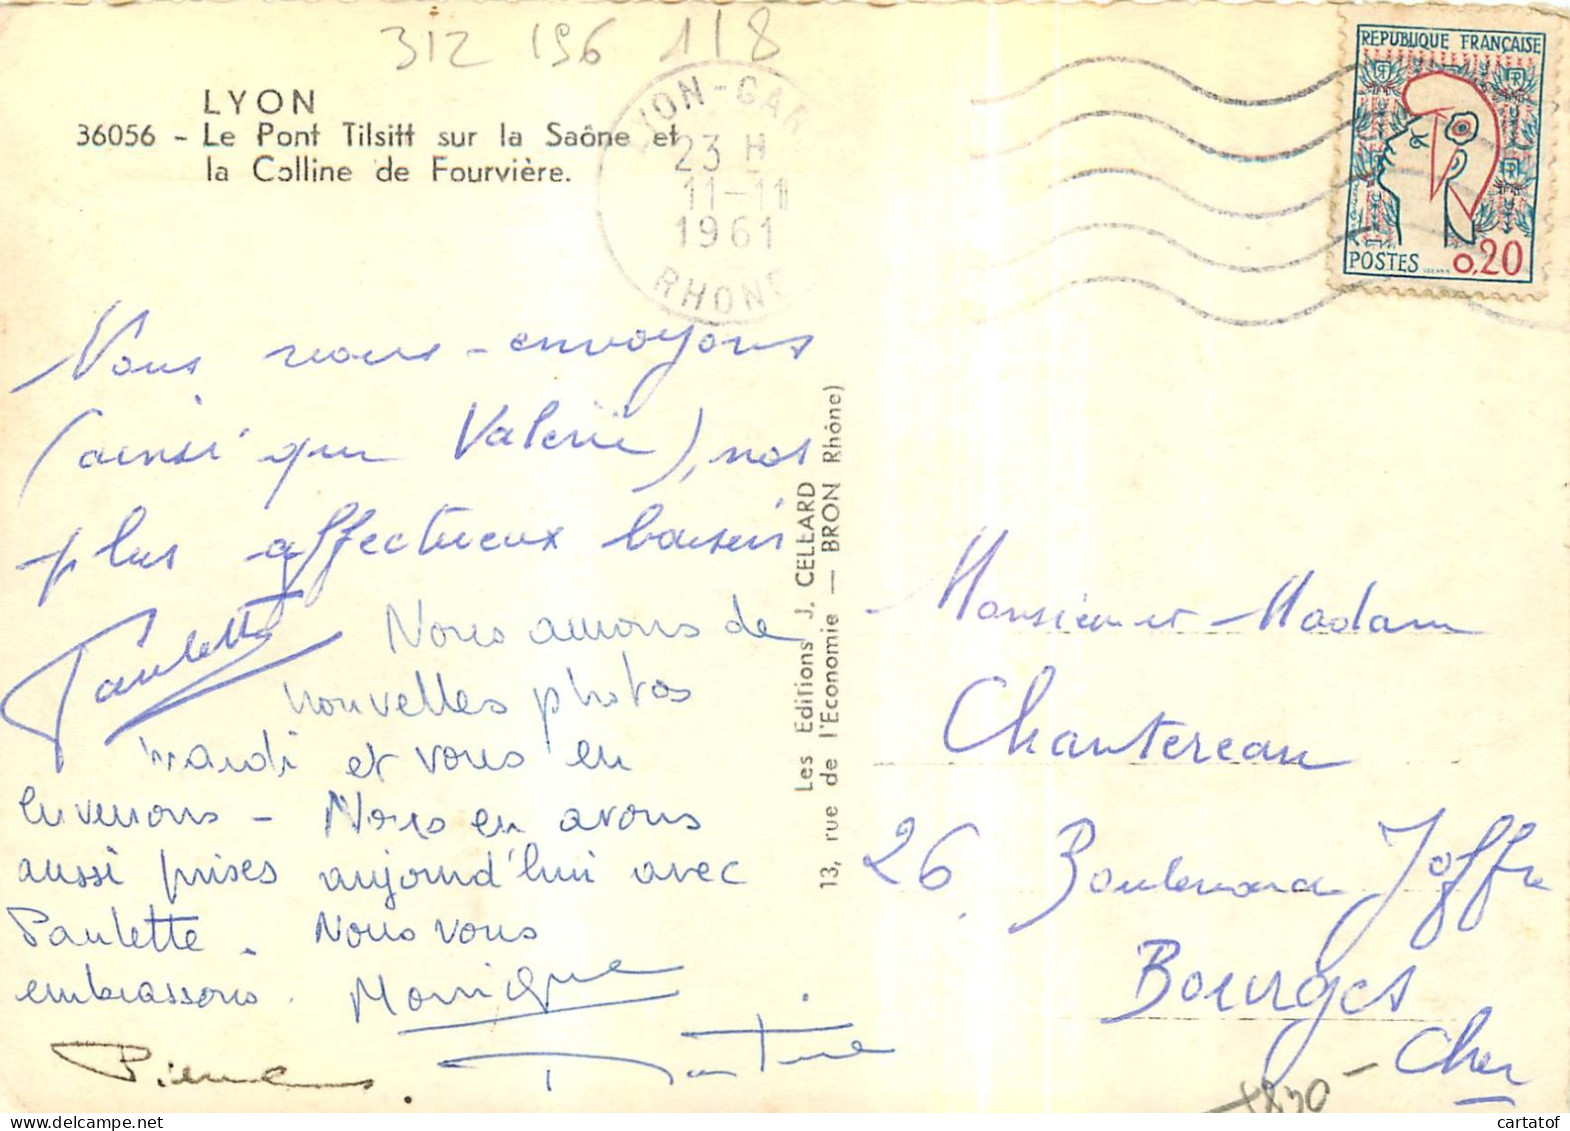 312 196 118
LYON
36056 - Le Pont Tilsitt sur la Saône et
la Colline de Fourvière.
LYON-GAR
23 H
11-11
1961
RHONE
REPUBLIQUE FRANÇAISE
POSTES 0,20
Nous vous envoyons
(ainsi que Valérie), nos
plus affectueux baisers
Paulette
Nous aurons de
nouvelles photos
mardi et vous en
enverrons - Nous en avons
aussi prises aujourd'hui avec
Paulette. Nous vous
embrassons. Monique
Martine
Les Editions J. CELLARD
13, rue de l'Economie — BRON Rhône)
Monsieur et Madame
Chantereau
26 Boulevard Joffre
Bourges
- Cher
cartatof